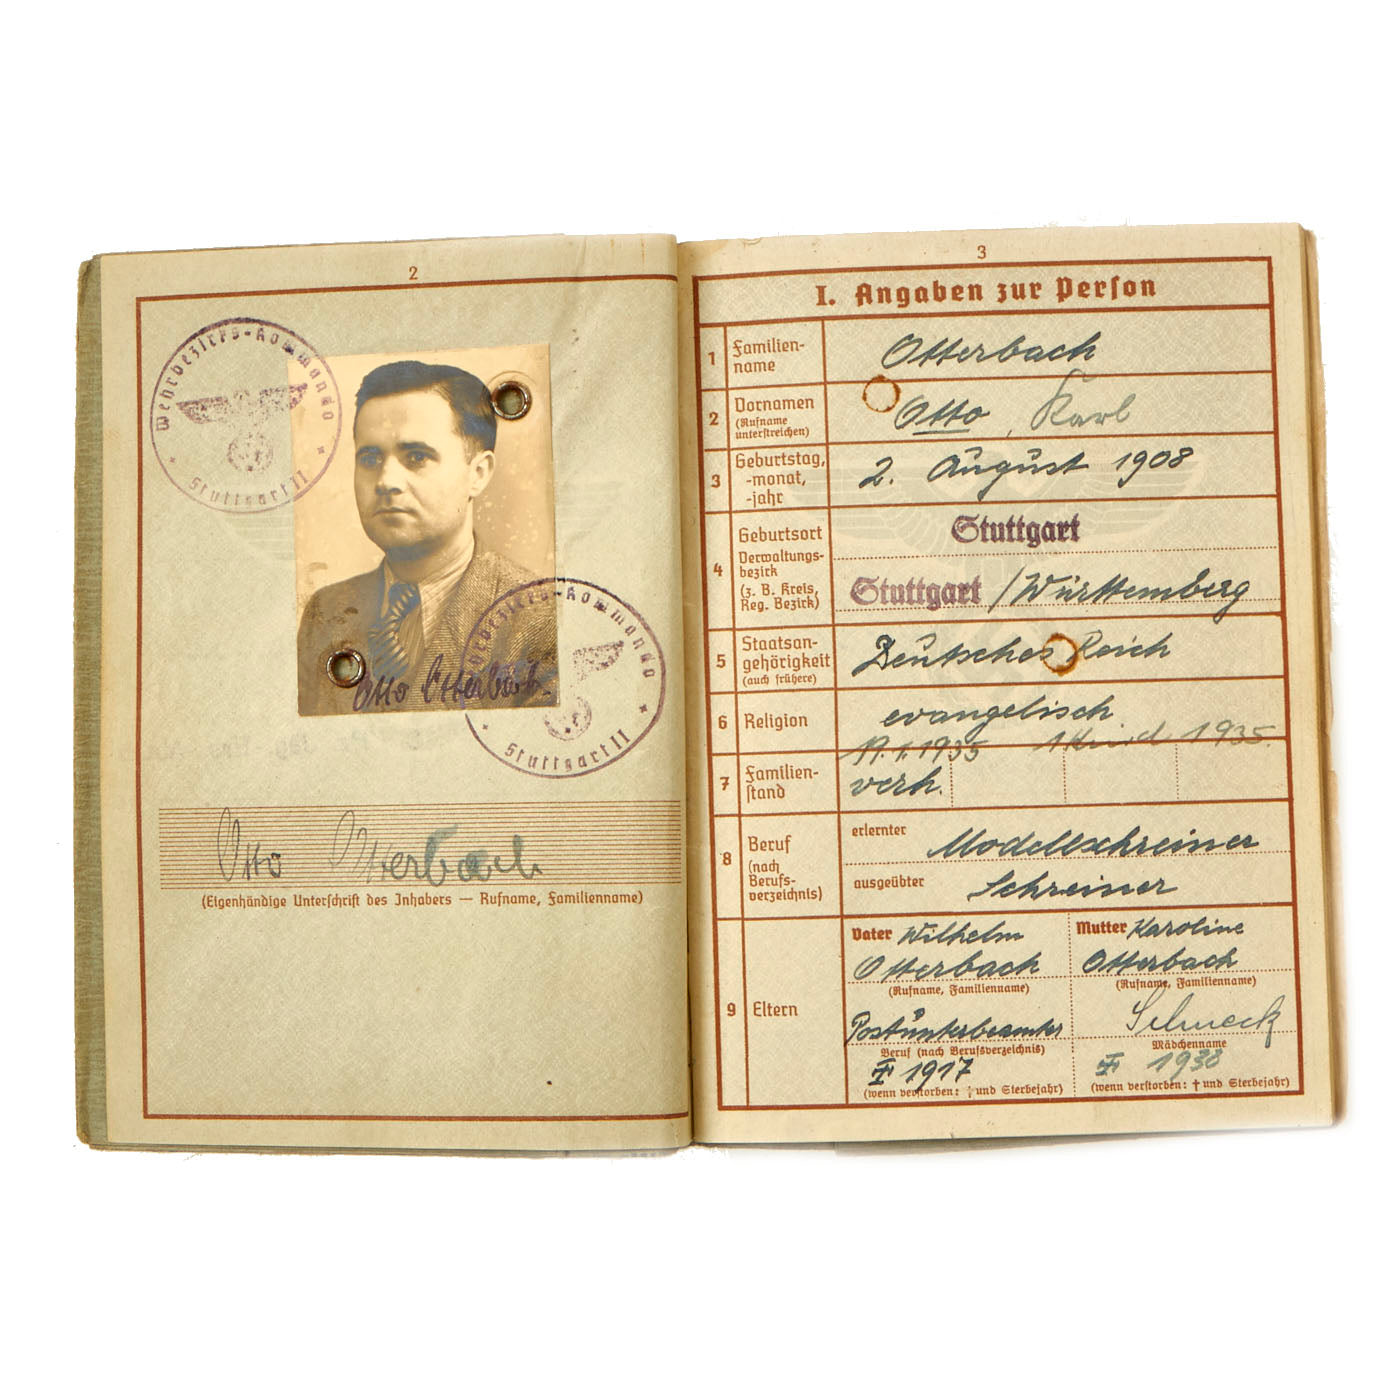 2
Wehrbezirks-Kommando
Stuttgart II
Otto Otterbach
Wehrbezirks-Kommando
Stuttgart II
Otto Otterbach
(Eigenhändige Unterschrift des Inhabers — Rufname, Familienname)
3
I. Angaben zur Person
1 Familien-
name
Otterbach
2 Vornamen
(Rufname
unterstreichen)
Otto, Karl
3 Geburtstag,
-monat,
-jahr
2. August 1908
4 Geburtsort
Verwaltungs-
bezirk
(z. B. Kreis,
Reg. Bezirk)
Stuttgart
Stuttgart / Württemberg
5 Staatsan-
gehörigkeit
(auch frühere)
Deutsches Reich
6 Religion
evangelisch
7 Familien-
stand
1935 1 Kind 1935.
verh.
8 Beruf
(nach
Berufs-
verzeichnis)
erlernter Modellschreiner
ausgeübter Schreiner
9 Eltern
Vater Wilhelm
Otterbach
(Rufname, Familienname)
Postunterbeamter
Beruf (nach Berufsverzeichnis)
1917
(wenn verstorben: † und Sterbejahr)
Mutter Karoline
Otterbach
(Rufname, Familienname)
Mädchenname
1938
(wenn verstorben: † und Sterbejahr)